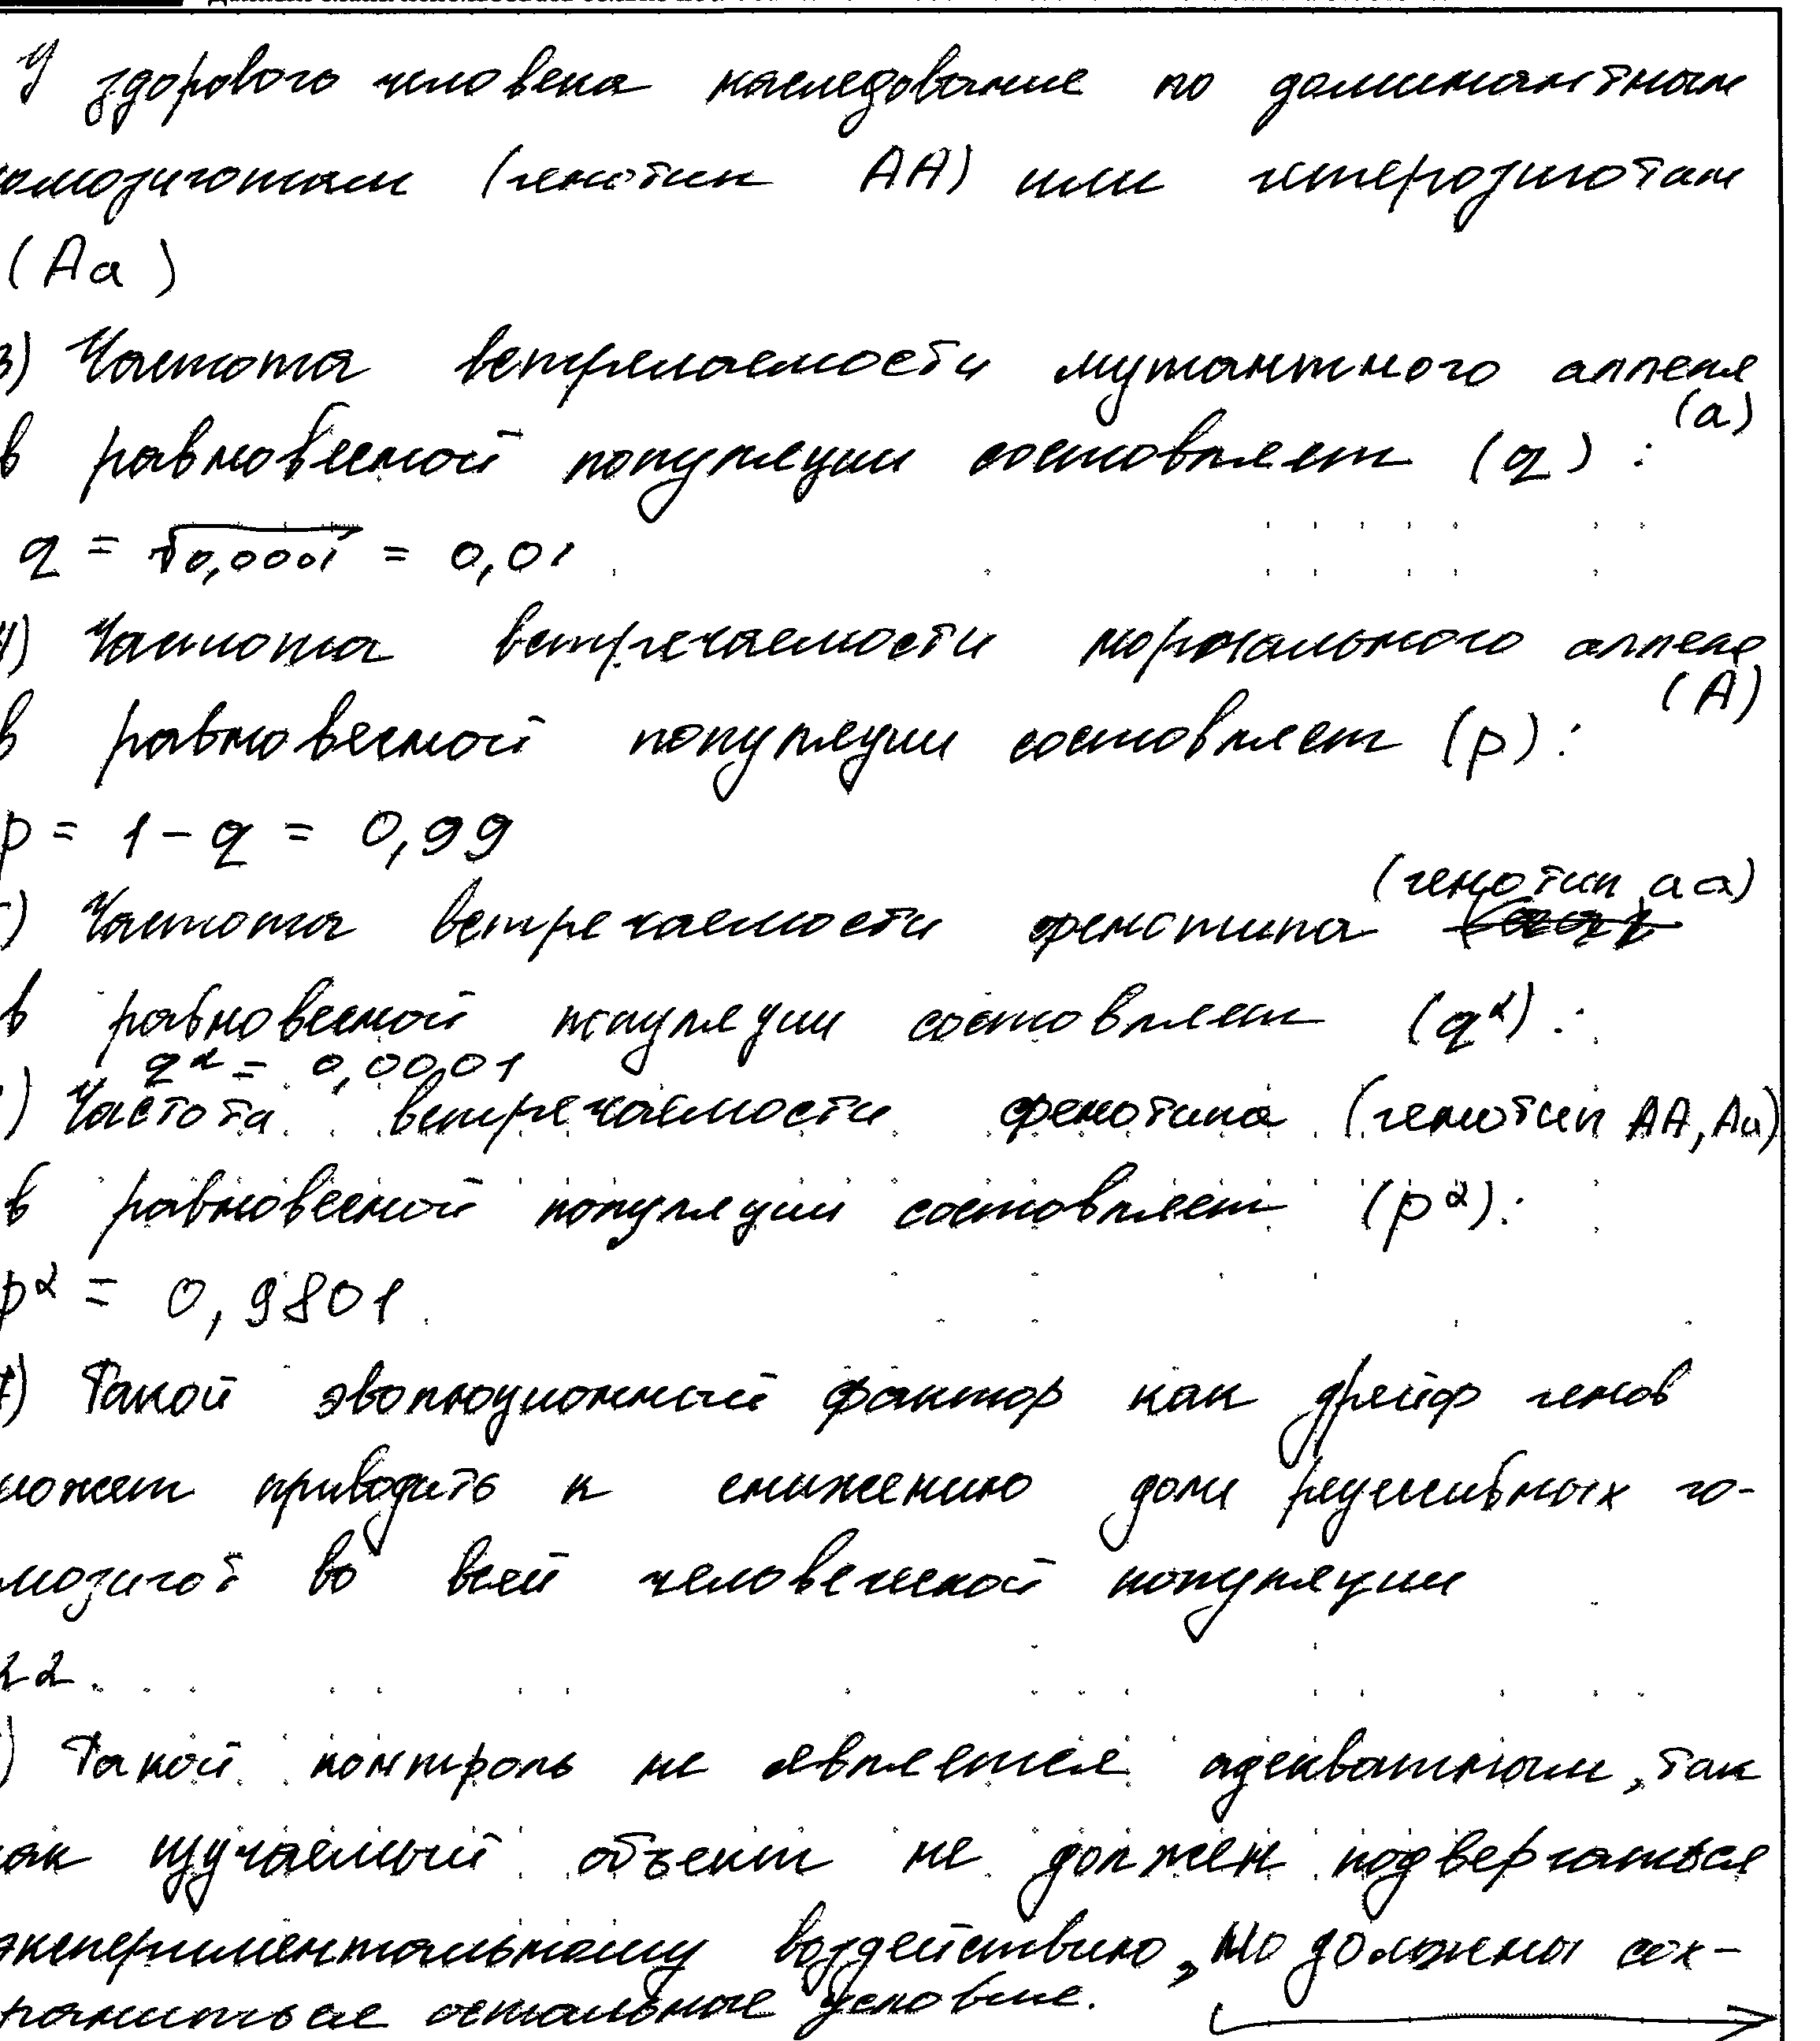 У здорового человека наследование по доминантным
омозиготам (генотип АА) или гетерозиготам
(Аа)
3) Частота встречаемости мутантного аллеля
(а)
в равновесной популяции составляет (q) :
q = √0,0001 = 0,01
4) Частота встречаемости нормального аллеля
(А)
в равновесной популяции составляет (p) :
p = 1 – q = 0,99
(генотип аа)
) Частота встречаемости фенотипа
в равновесной популяции составляет (q²) :
q² = 0,0001
) Частота встречаемости фенотипа (генотип АА, Аа)
в равновесной популяции составляет (p²):
p² = 0,9801.
7) Такой эволюционный фактор как дрейф генов
может приводить к снижению доли рецессивных го-
мозигот во всей человеческой популяции
22.
) Такой контроль не является адекватным, так
как изучаемый объект не должен подвергаться
экспериментальному воздействию, но должны сох-
раниться остальные условие.